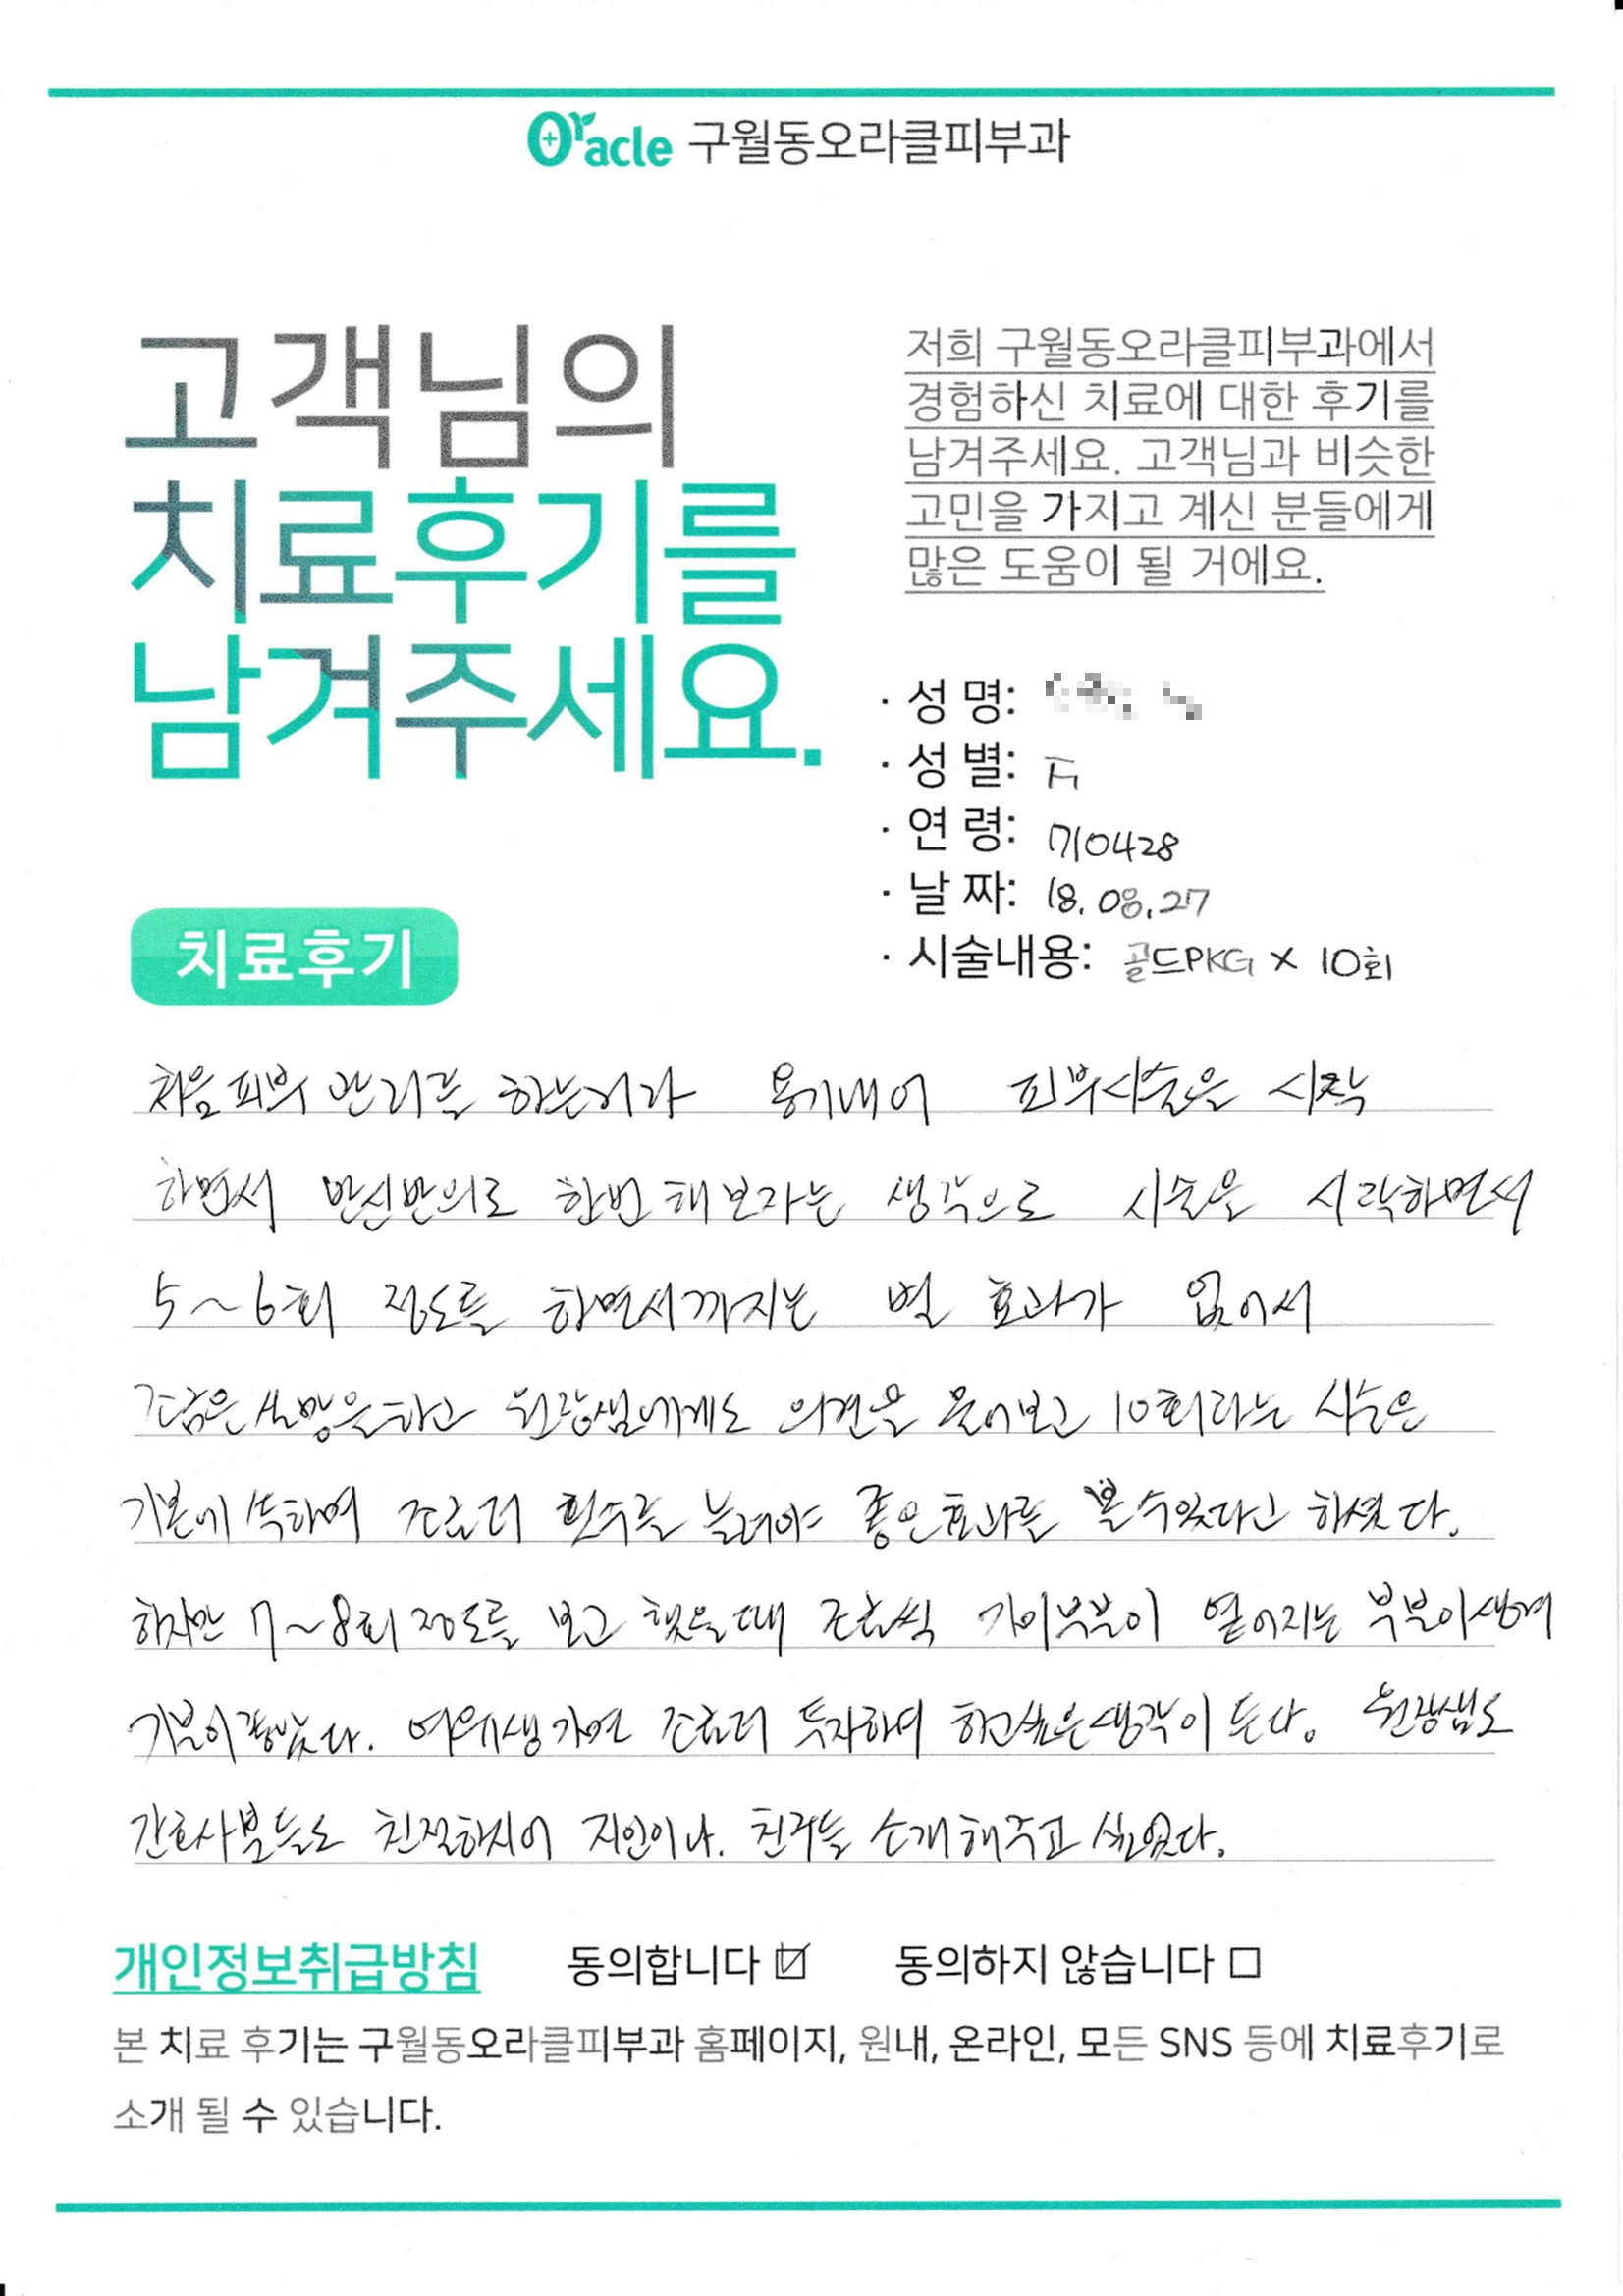 Oracle 구월동오라클피부과
고객님의
치료후기를
남겨주세요.
저희 구월동오라클피부과에서
경험하신 치료에 대한 후기를
남겨주세요. 고객님과 비슷한
고민을 가지고 계신 분들에게
많은 도움이 될 거에요.
· 성 명:
· 성 별: F
· 연 령: 710428
· 날 짜: 18. 08. 27
· 시술내용: 골드PKG X 10회
치료후기
처음 피부 관리를 하는거라 용기내어 피부시술을 시작
하면서 반신반의로 한번 해보자는 생각으로 시술을 시작하면서
5~6회 정도를 하면서까지는 별 효과가 없어서
조금은 실망을 하고 원장샘에게도 의견을 물어보고 10회라는 시술은
기본에 속하며 조금더 횟수를 늘려야 좋은효과를 볼수있다고 하셨다.
하지만 7~8회 정도를 받고 했을때 조금씩 기미부분이 옅어지는 부분이생겨
기분이좋았다. 여유생기면 조금더 투자하여 하고싶은생각이 든다. 원장샘도
간호사분들도 친절하시어 지인이나. 친구들 소개해주고 싶었다.
개인정보취급방침 동의합니다 ☑ 동의하지 않습니다 □
본 치료 후기는 구월동오라클피부과 홈페이지, 원내, 온라인, 모든 SNS 등에 치료후기로
소개 될 수 있습니다.